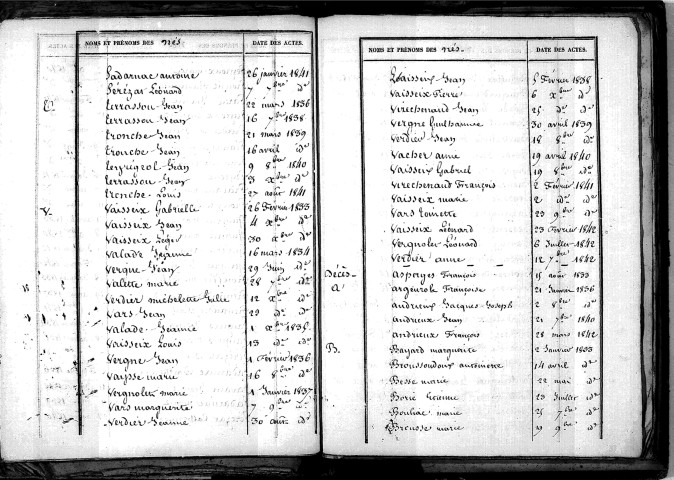 NOMS ET PRÉNOMS DES nés DATE DES ACTES.
Sadarnac antoine 26 janvier 1841
Sérézat Léonard 7 7bre de
T. terrassou Jean 22 mars 1836
terrassou Jean 16 7bre 1838
tronche Jean 21 mars 1839
tronche Jean 16 avril de
teyssignol Jean 9 8bre 1840
terrassou Jean 3 Xbre de
tronche Louis 27 août 1841
V. Vaisseix Gabrielle 26 Février 1833
Vaisseix Jean 4 Xbre de
Vaisseix Léger 30 Xbre de
Valade Jeanne 16 mars 1834
Vergne Jean 29 Juin de
Valette marie 28 7bre de
Verdier michelette Julie 12 Xbre de
Vars Jean 29 de de
Valade Jeanne 1 Xbre 1835
Vaisseix Louis 13 de de
Vergne Jean 1 Février 1836
Vaysse marie 16 8bre de
Vergnolle marie 1 Janvier 1837
Vars marguerite 7 9bre de
Verdier Jeanne 30 août de
NOMS ET PRÉNOMS DES nés. DATE DES ACTES.
Vaisseix Jean 5 Février 1838
Vaisseix Pierre 6 Xbre de
Virechenaud Jean 25 de de
Vergne Guilhaumée 30 avril 1839
Verdier Jean 18 8bre de
Vacher anne 19 avril 1840
Vaisseix Gabriel 19 8bre de
Virechenaud François 2 Février 1841
Vaisseix marie 2 de de
Vars toinette 23 9bre de
Vaisseix Léonard 23 Février 1842
Vergnolle Léonard 6 Juillet 1842
Verdier anne 12 7bre 1842
Décès
Asperges François 15 août 1833
A argueyrolle Françoise 21 Janvier 1836
andrieux Jacques Joseph 2 8bre de
andrieux Jean 21 7bre 1840
andrieux François 28 mars 1842
B. Bayard marguerite 2 Janvier 1833
Broussoudoux antoinette 14 avril de
Besse marie 22 mai de
Borie Etienne 23 Juillet de
Bouliac marie 25 7bre de
Brousse marie 19 9bre de